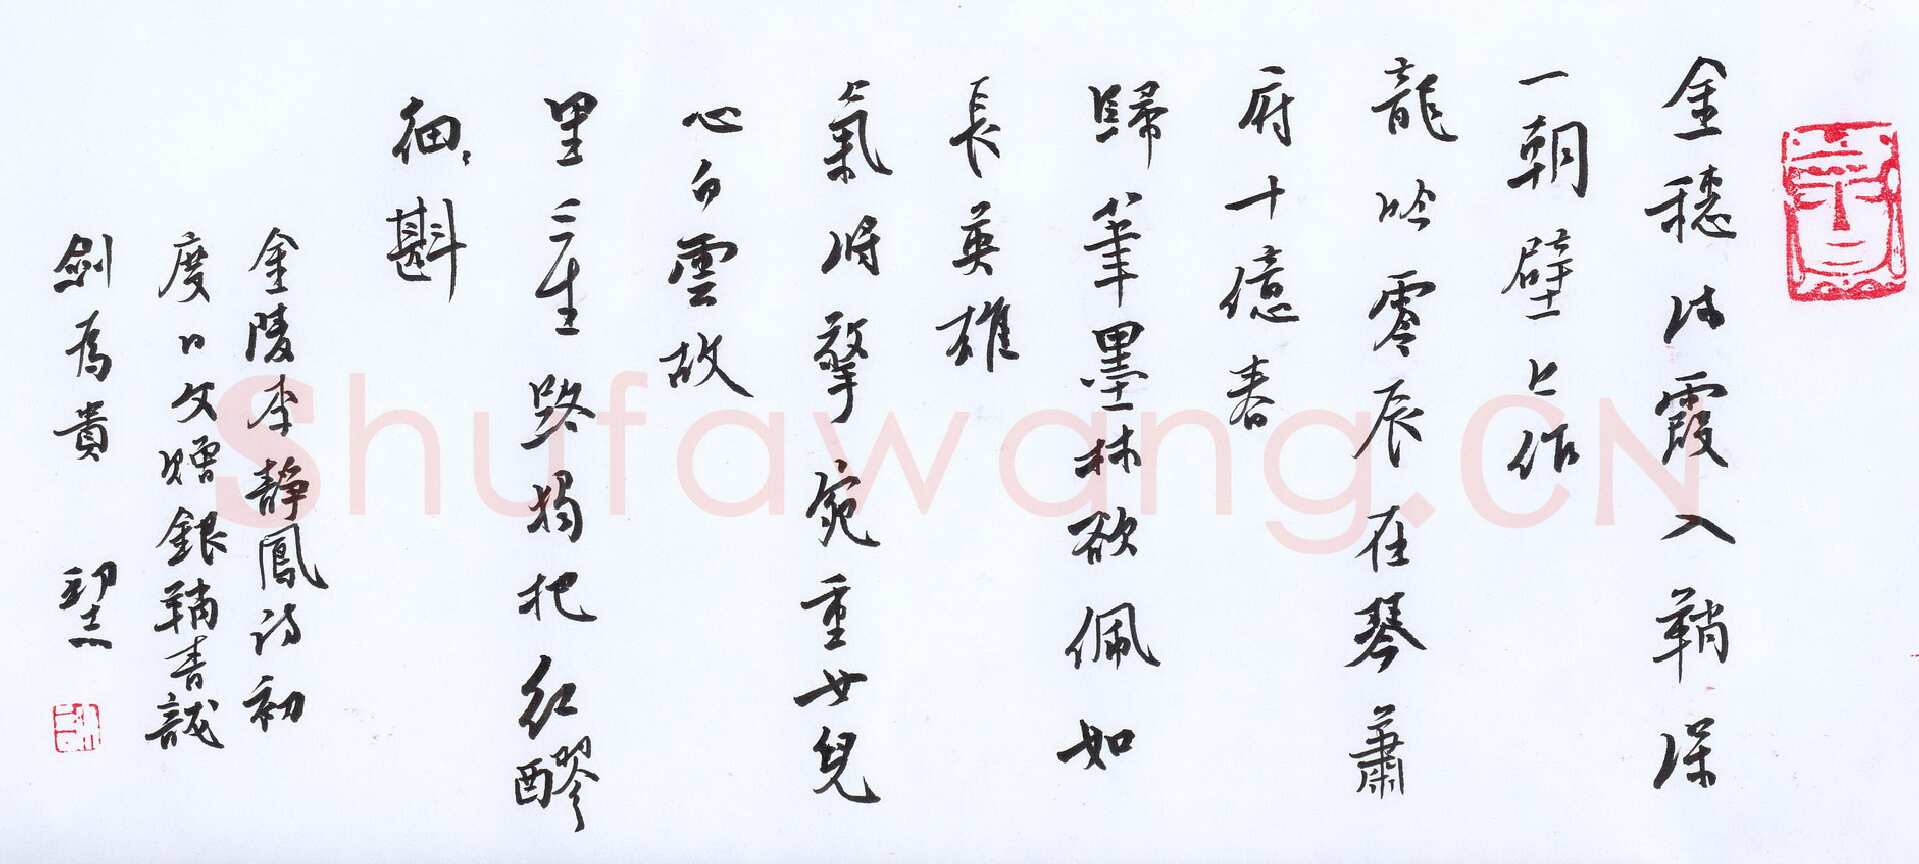 金穗流霞入鞘深
一朝壁上作
龍吟零辰在琴蕭
府十億春
歸筆墨林欲佩如
長英雄
氣將擎宛重女兒
心白雲故
里三生路揭把紅醪
細、斟
金陵李靜鳳詩初
度日文贈銀鞘書誠
劍為貴
Shufawang.CN